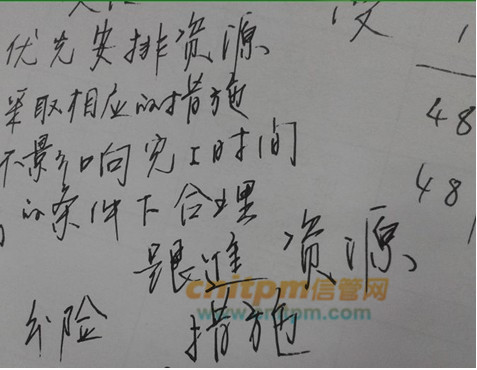 优先安排资源 1
采取相应的措施 48
不影响完工时间
的条件下合理 48
资源
cnitpm信管网
www.cnitpm.com
措施